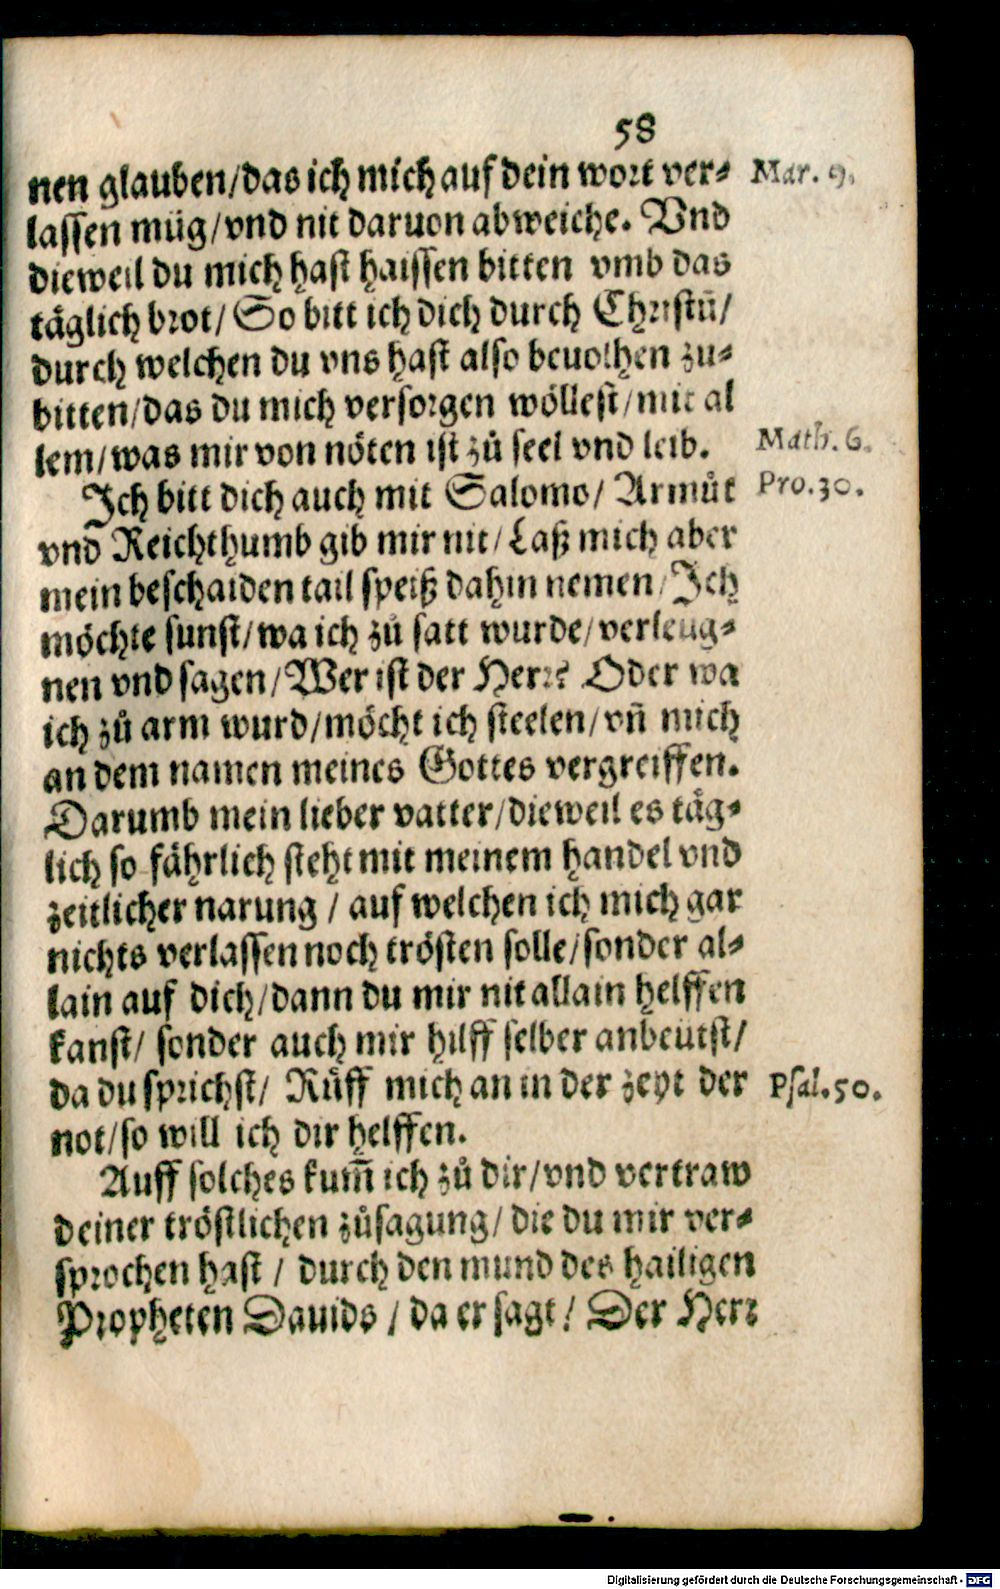 58
nen glauben/das ich mich auf dein wort ver⸗ Mar. 9.
lassen müg/vnd nit daruon abweiche. Vnd
dieweil du mich hast haissen bitten vmb das
täglich brot/ So bitt ich dich durch Christū/
durch welchen du vns hast also beuolhen zu⸗
bitten/das du mich versorgen wöllest/mit al
lem/was mir von nöten ist zů seel vnd leib. Math. 6.
Ich bitt dich auch mit Salomo/ Armůt Pro. 30.
vnd Reichthumb gib mir nit/ Laß mich aber
mein beschaiden tail speiß dahin nemen/ Ich
möchte sunst/wa ich zů satt wurde/verleug⸗
nen vnd sagen/Wer ist der Herr? Oder wa
ich zů arm wurd/möcht ich steelen/vñ mich
an dem namen meines Gottes vergreiffen.
Darumb mein lieber vatter/dieweil es täg⸗
lich so fährlich steht mit meinem handel vnd
zeitlicher narung / auf welchen ich mich gar
nichts verlassen noch trösten solle/sonder al⸗
lain auf dich/dann du mir nit allain helffen
kanst/ sonder auch mir hilff selber anbeütst/
da du sprichst/ Růff mich an in der zeyt der Psal. 50.
not/so will ich dir helffen.
Auff solches kum̄ ich zů dir/vnd vertraw
deiner tröstlichen zůsagung/ die du mir ver⸗
sprochen hast / durch den mund des hailigen
Propheten Dauids / da er sagt/ Der Herr
Digitalisierung gefördert durch die Deutsche Forschungsgemeinschaft - DFG